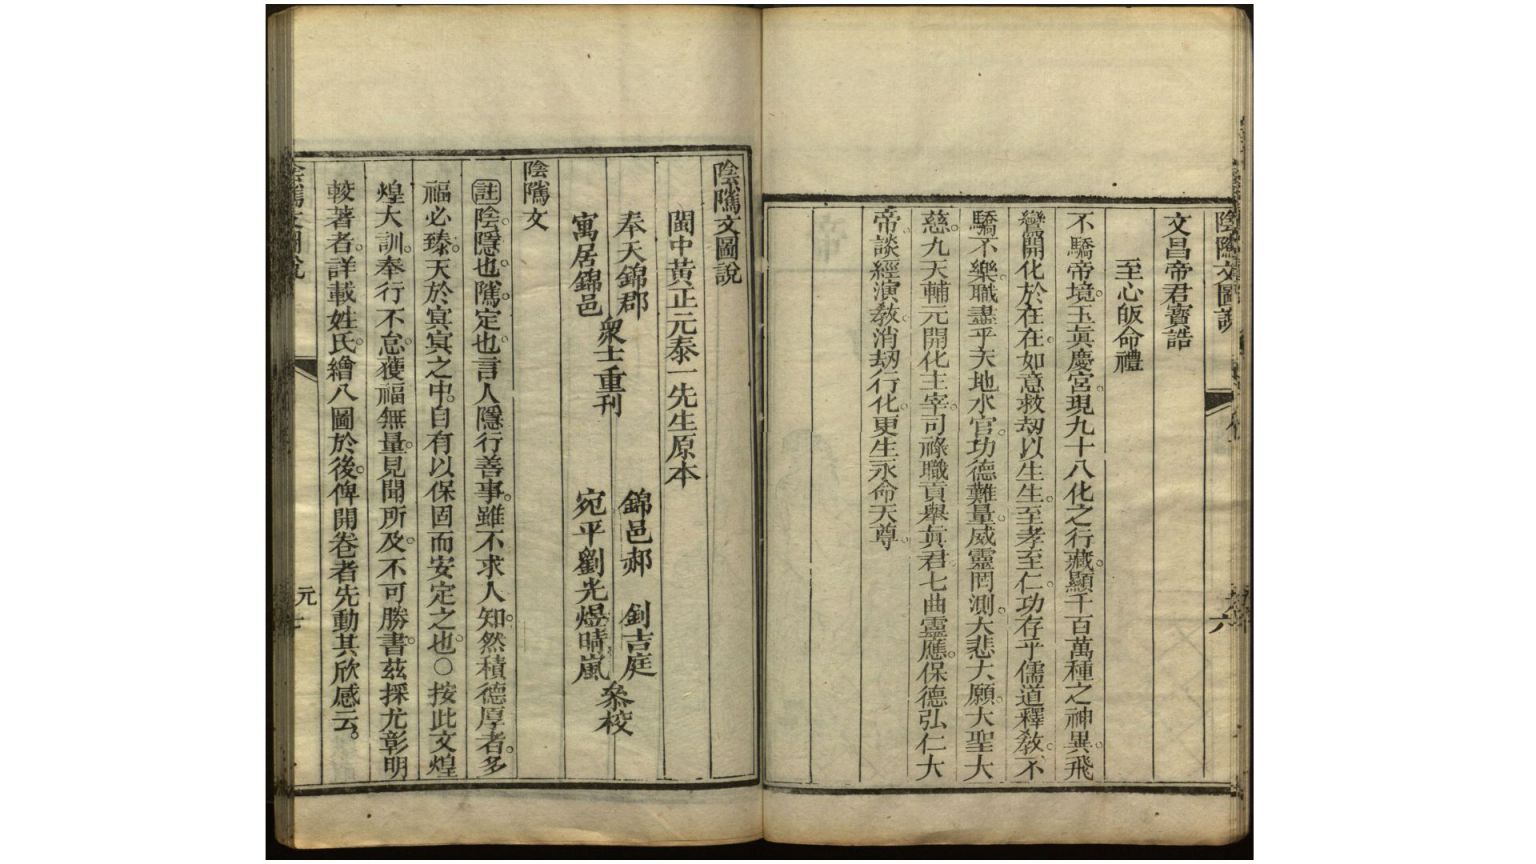 陰隲文圖說
六
文昌帝君寶誥
至心皈命禮
不驕帝境。玉眞慶宮。現九十八化之行藏。顯千百萬種之神異。飛
鸞開化於在在。如意救刼以生生。至孝至仁。功存乎儒道釋敎。不
驕不樂。職盡乎天地水官。功德難量。威靈罔測。大悲大願。大聖大
慈。九天輔元開化主宰。司祿職貢舉眞君。七曲靈應。保德弘仁大
帝。談經演敎。消刼行化。更生永命天尊。
陰隲文圖說
閩中黃正元泰一先生原本
奉天錦郡
寓居錦邑
衆士重刊
錦邑郝 釗吉庭
宛平劉光煜晴嵐
叅校
陰隲文
註陰。隱也。隲。定也。言人隱行善事。雖不求人知。然積德厚者。多
福必臻。天於冥冥之中。自有以保固而安定之也。○按此文煌
煌大訓。奉行不怠。獲福無量。見聞所及。不可勝書。茲採尤彰明
較著者。詳載姓氏。繪八圖於後。俾開卷者先動其欣感云。
陰隲文圖說
元 七